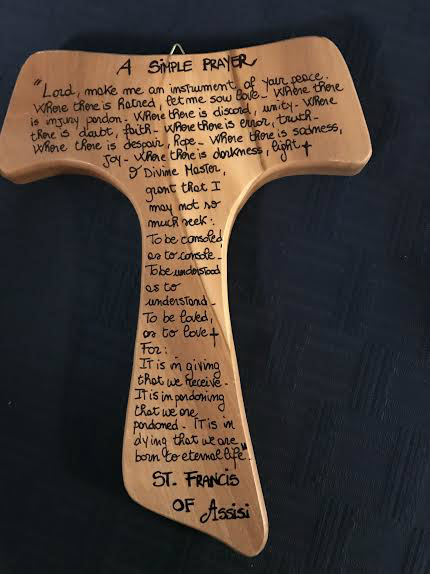 A SIMPLE PRAYER
"Lord, make me an instrument of your peace.
Where there is hatred, let me sow love_ Where there
is injury pardon_ Where there is discord, unity_ Where
there is doubt, faith_ Where there is error, truth_
Where there is despair, hope_ Where there is sadness,
joy_ Where there is darkness, light †
O Divine Master,
grant that I
may not so
much seek:
To be consoled,
as to console_
To be understood
as to
understand_
To be loved,
as to love †
For:
IT is in giving
that we receive_
IT is in pardoning
that we are
pardoned_ IT is in
dying that we are
born to eternal life."
ST. FRANCIS
OF Assisi